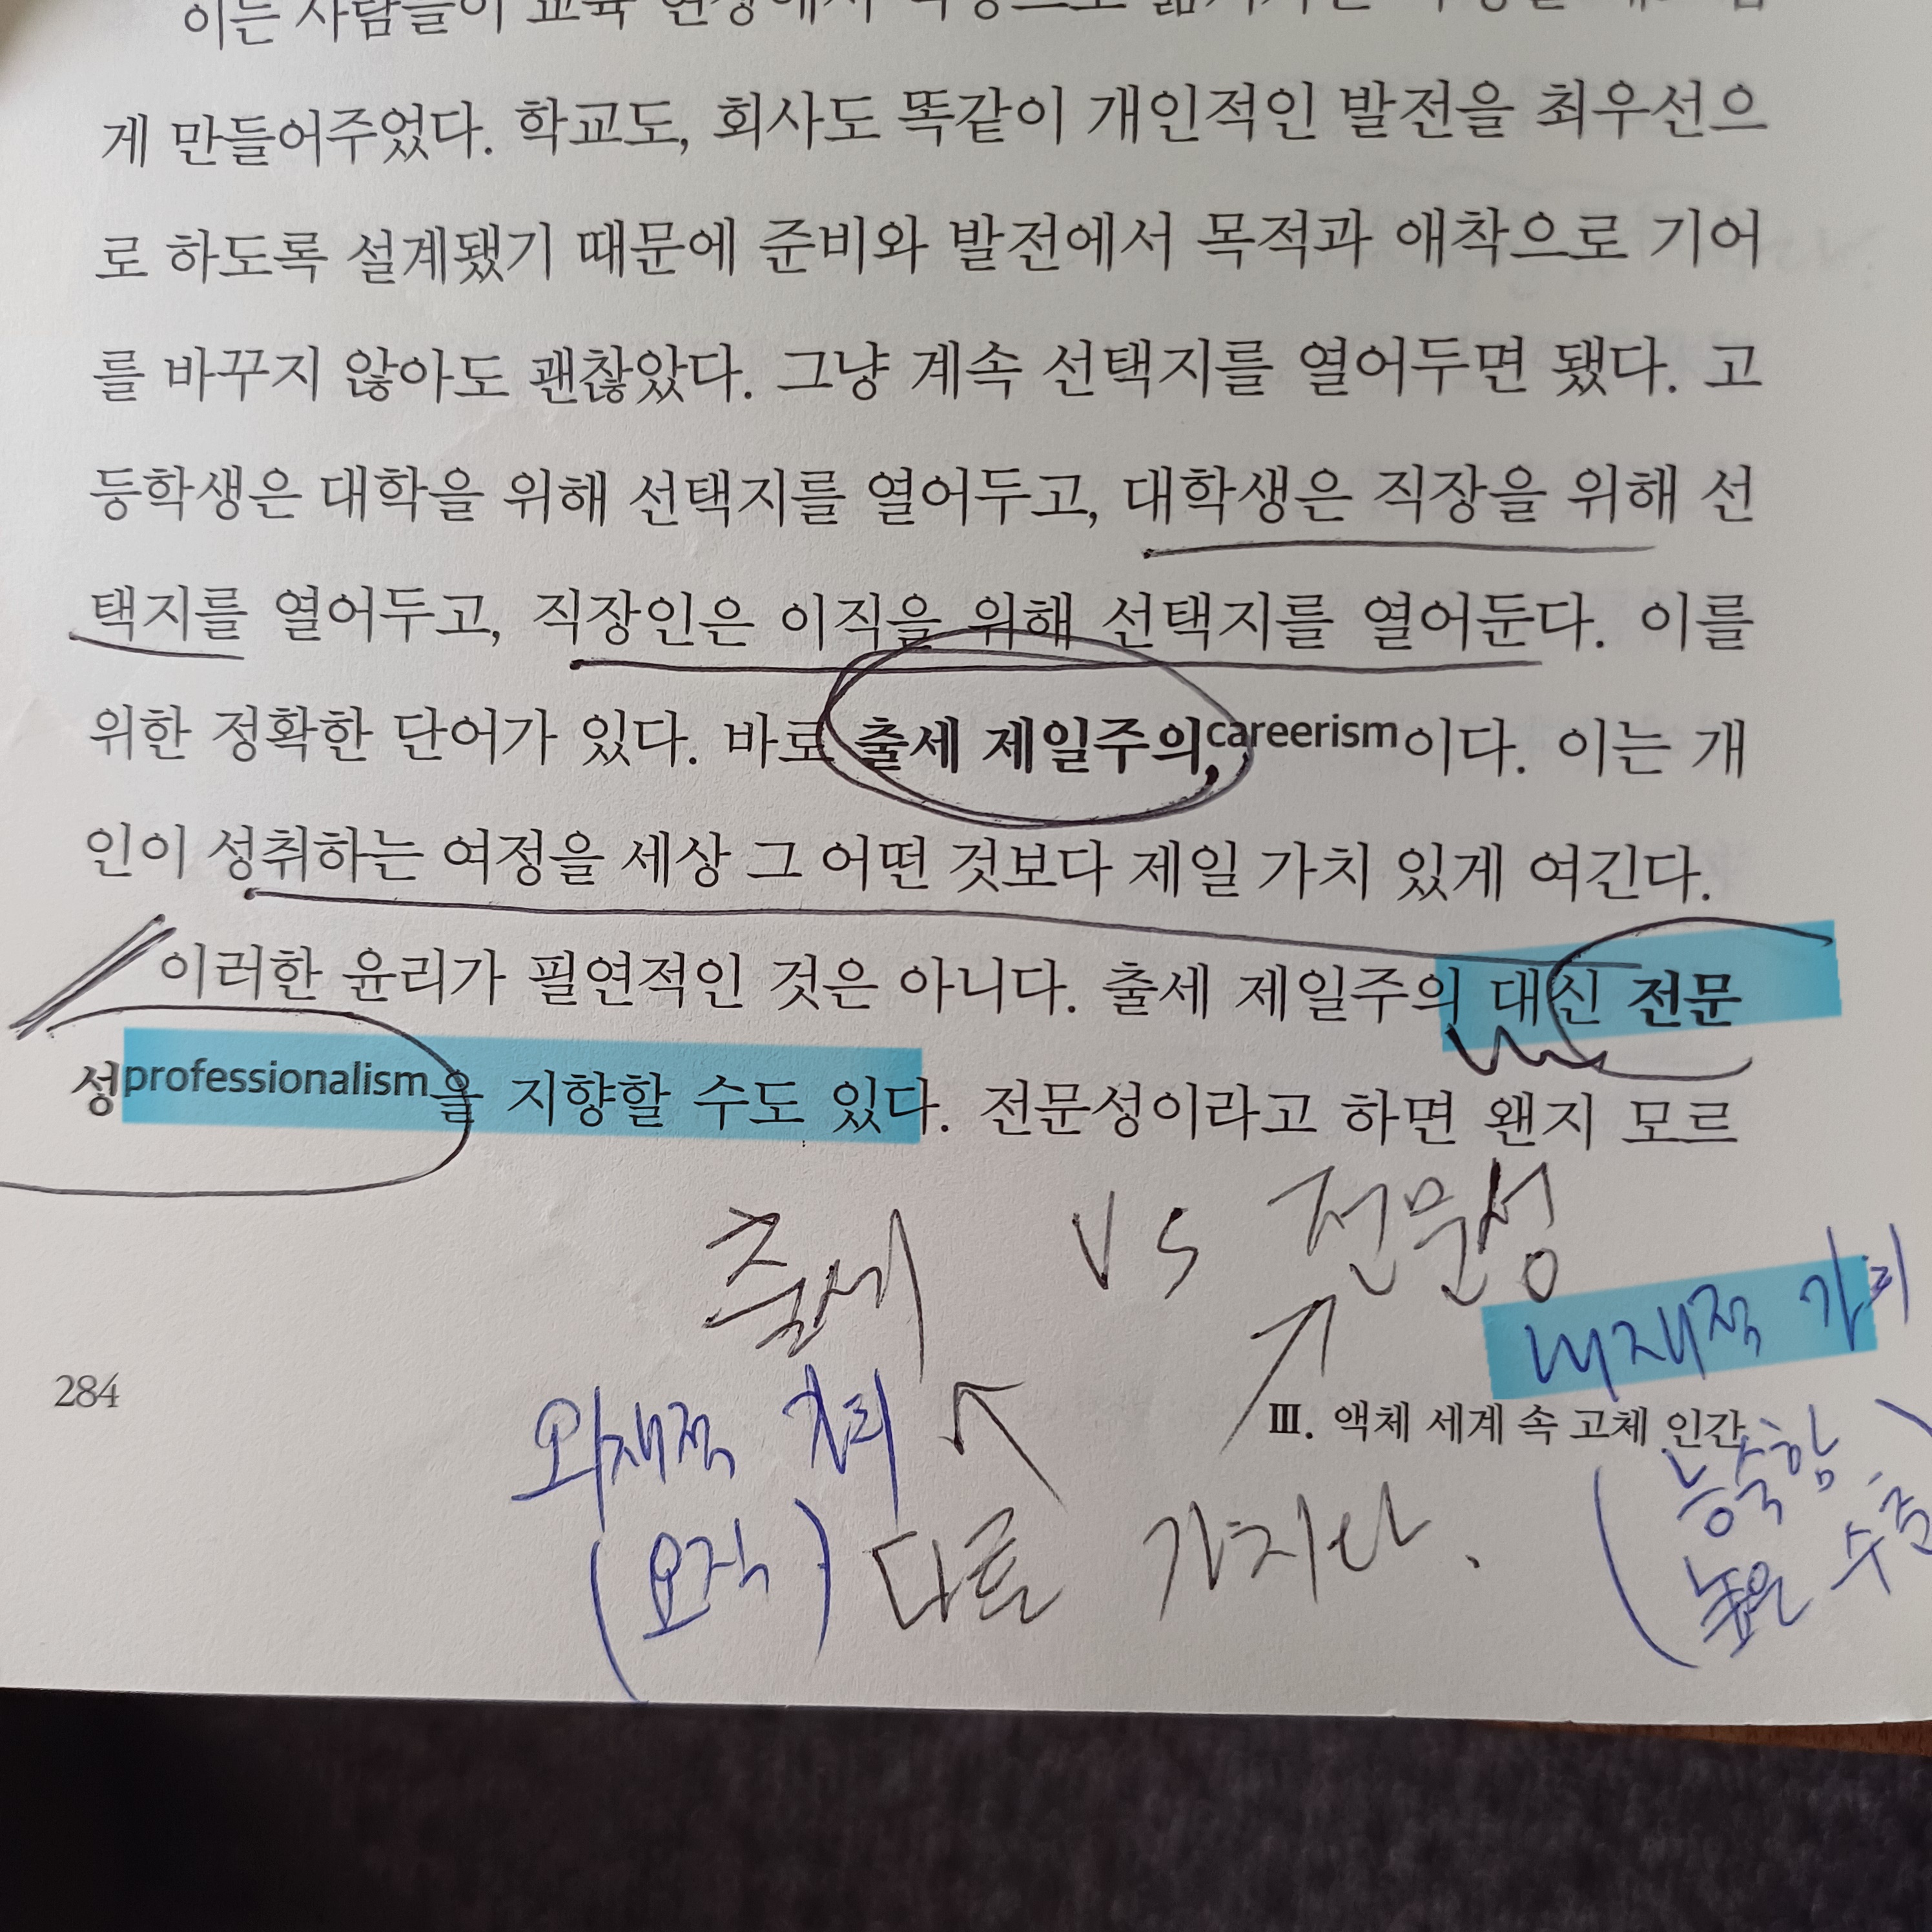 이는 사람들이 교육 현장에서
게 만들어주었다. 학교도, 회사도 똑같이 개인적인 발전을 최우선으
로 하도록 설계됐기 때문에 준비와 발전에서 목적과 애착으로 기어
를 바꾸지 않아도 괜찮았다. 그냥 계속 선택지를 열어두면 됐다. 고
등학생은 대학을 위해 선택지를 열어두고, 대학생은 직장을 위해 선
택지를 열어두고, 직장인은 이직을 위해 선택지를 열어둔다. 이를
위한 정확한 단어가 있다. 바로 출세 제일주의careerism이다. 이는 개
인이 성취하는 여정을 세상 그 어떤 것보다 제일 가치 있게 여긴다.
이러한 윤리가 필연적인 것은 아니다. 출세 제일주의 대신 전문
성professionalism을 지향할 수도 있다. 전문성이라고 하면 왠지 모르
출세 vs 전문성
내재적 가치
284
III. 액체 세계 속 고체 인간
외재적 가치
능숙함
높은 수준
(오직) 다른